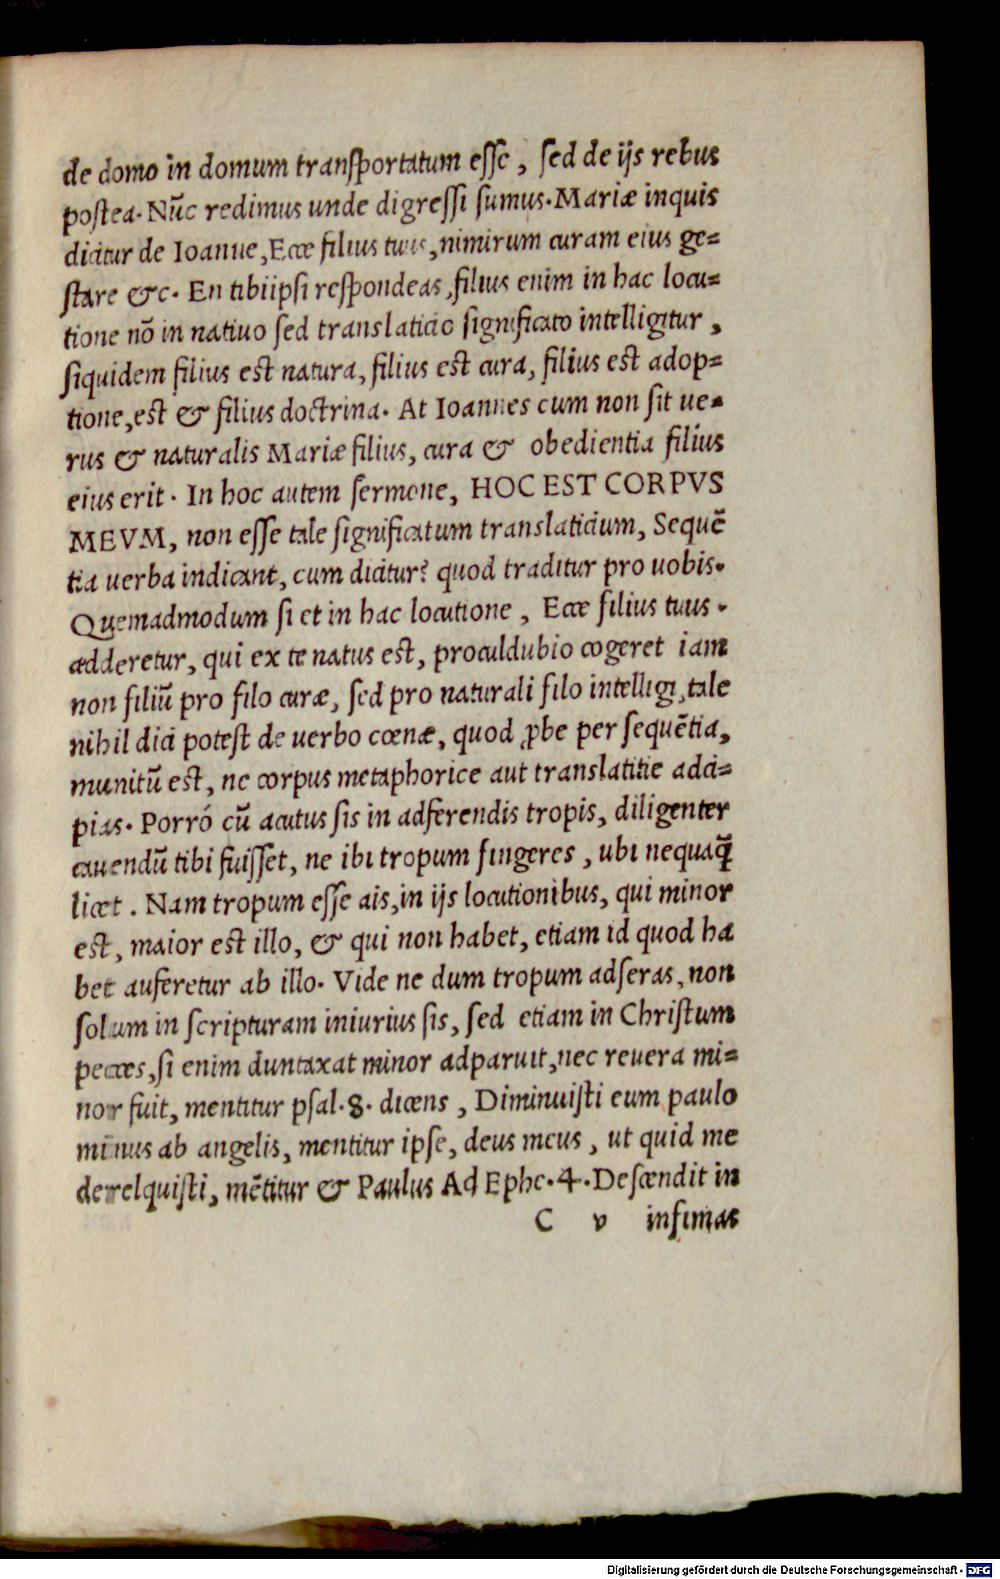 de domo in domum transportatum esse, sed de ijs rebus
postea. Nūc redimus unde digressi sumus. Mariæ inquis
dicitur de Ioanne, Ecce filius tuus, nimirum curam eius ge=
stare &c. En tibiipsi respondeas, filius enim in hac locu=
tione nō in natiuo sed translaticio significato intelligitur,
siquidem filius est natura, filius est cura, filius est adop=
tione, est & filius doctrina. At Ioannes cum non sit ue=
rus & naturalis Mariæ filius, cura & obedientia filius
eius erit. In hoc autem sermone, HOC EST CORPVS
MEVM, non esse tale significatum translaticium, Sequē
tia uerba indicant, cum dicitur? quod traditur pro uobis.
Quemadmodum si et in hac locutione, Ecce filius tuus.
adderetur, qui ex te natus est, proculdubio cogeret iam
non filiū pro filo curæ, sed pro naturali filo intelligi, tale
nihil dici potest de uerbo cœnæ, quod ꝓbe per sequētia,
munitū est, ne corpus metaphorice aut translatitie adci=
pias. Porró cū acutus sis in adferendis tropis, diligenter
cauendū tibi fuisset, ne ibi tropum fingeres, ubi nequaq̄
licet. Nam tropum esse ais, in ijs locutionibus, qui minor
est, maior est illo, & qui non habet, etiam id quod ha
bet auferetur ab illo. Vide ne dum tropum adseras, non
solum in scripturam iniurius sis, sed etiam in Christum
pecces, si enim duntaxat minor adparuit, nec reuera mi=
nor fuit, mentitur psal. 8. dicens, Diminuisti eum paulo
minus ab angelis, mentitur ipse, deus meus, ut quid me
derelquisti, mētitur & Paulus Ad Ephe. 4. Descendit in
C v infimas
Digitalisierung gefördert durch die Deutsche Forschungsgemeinschaft - DFG